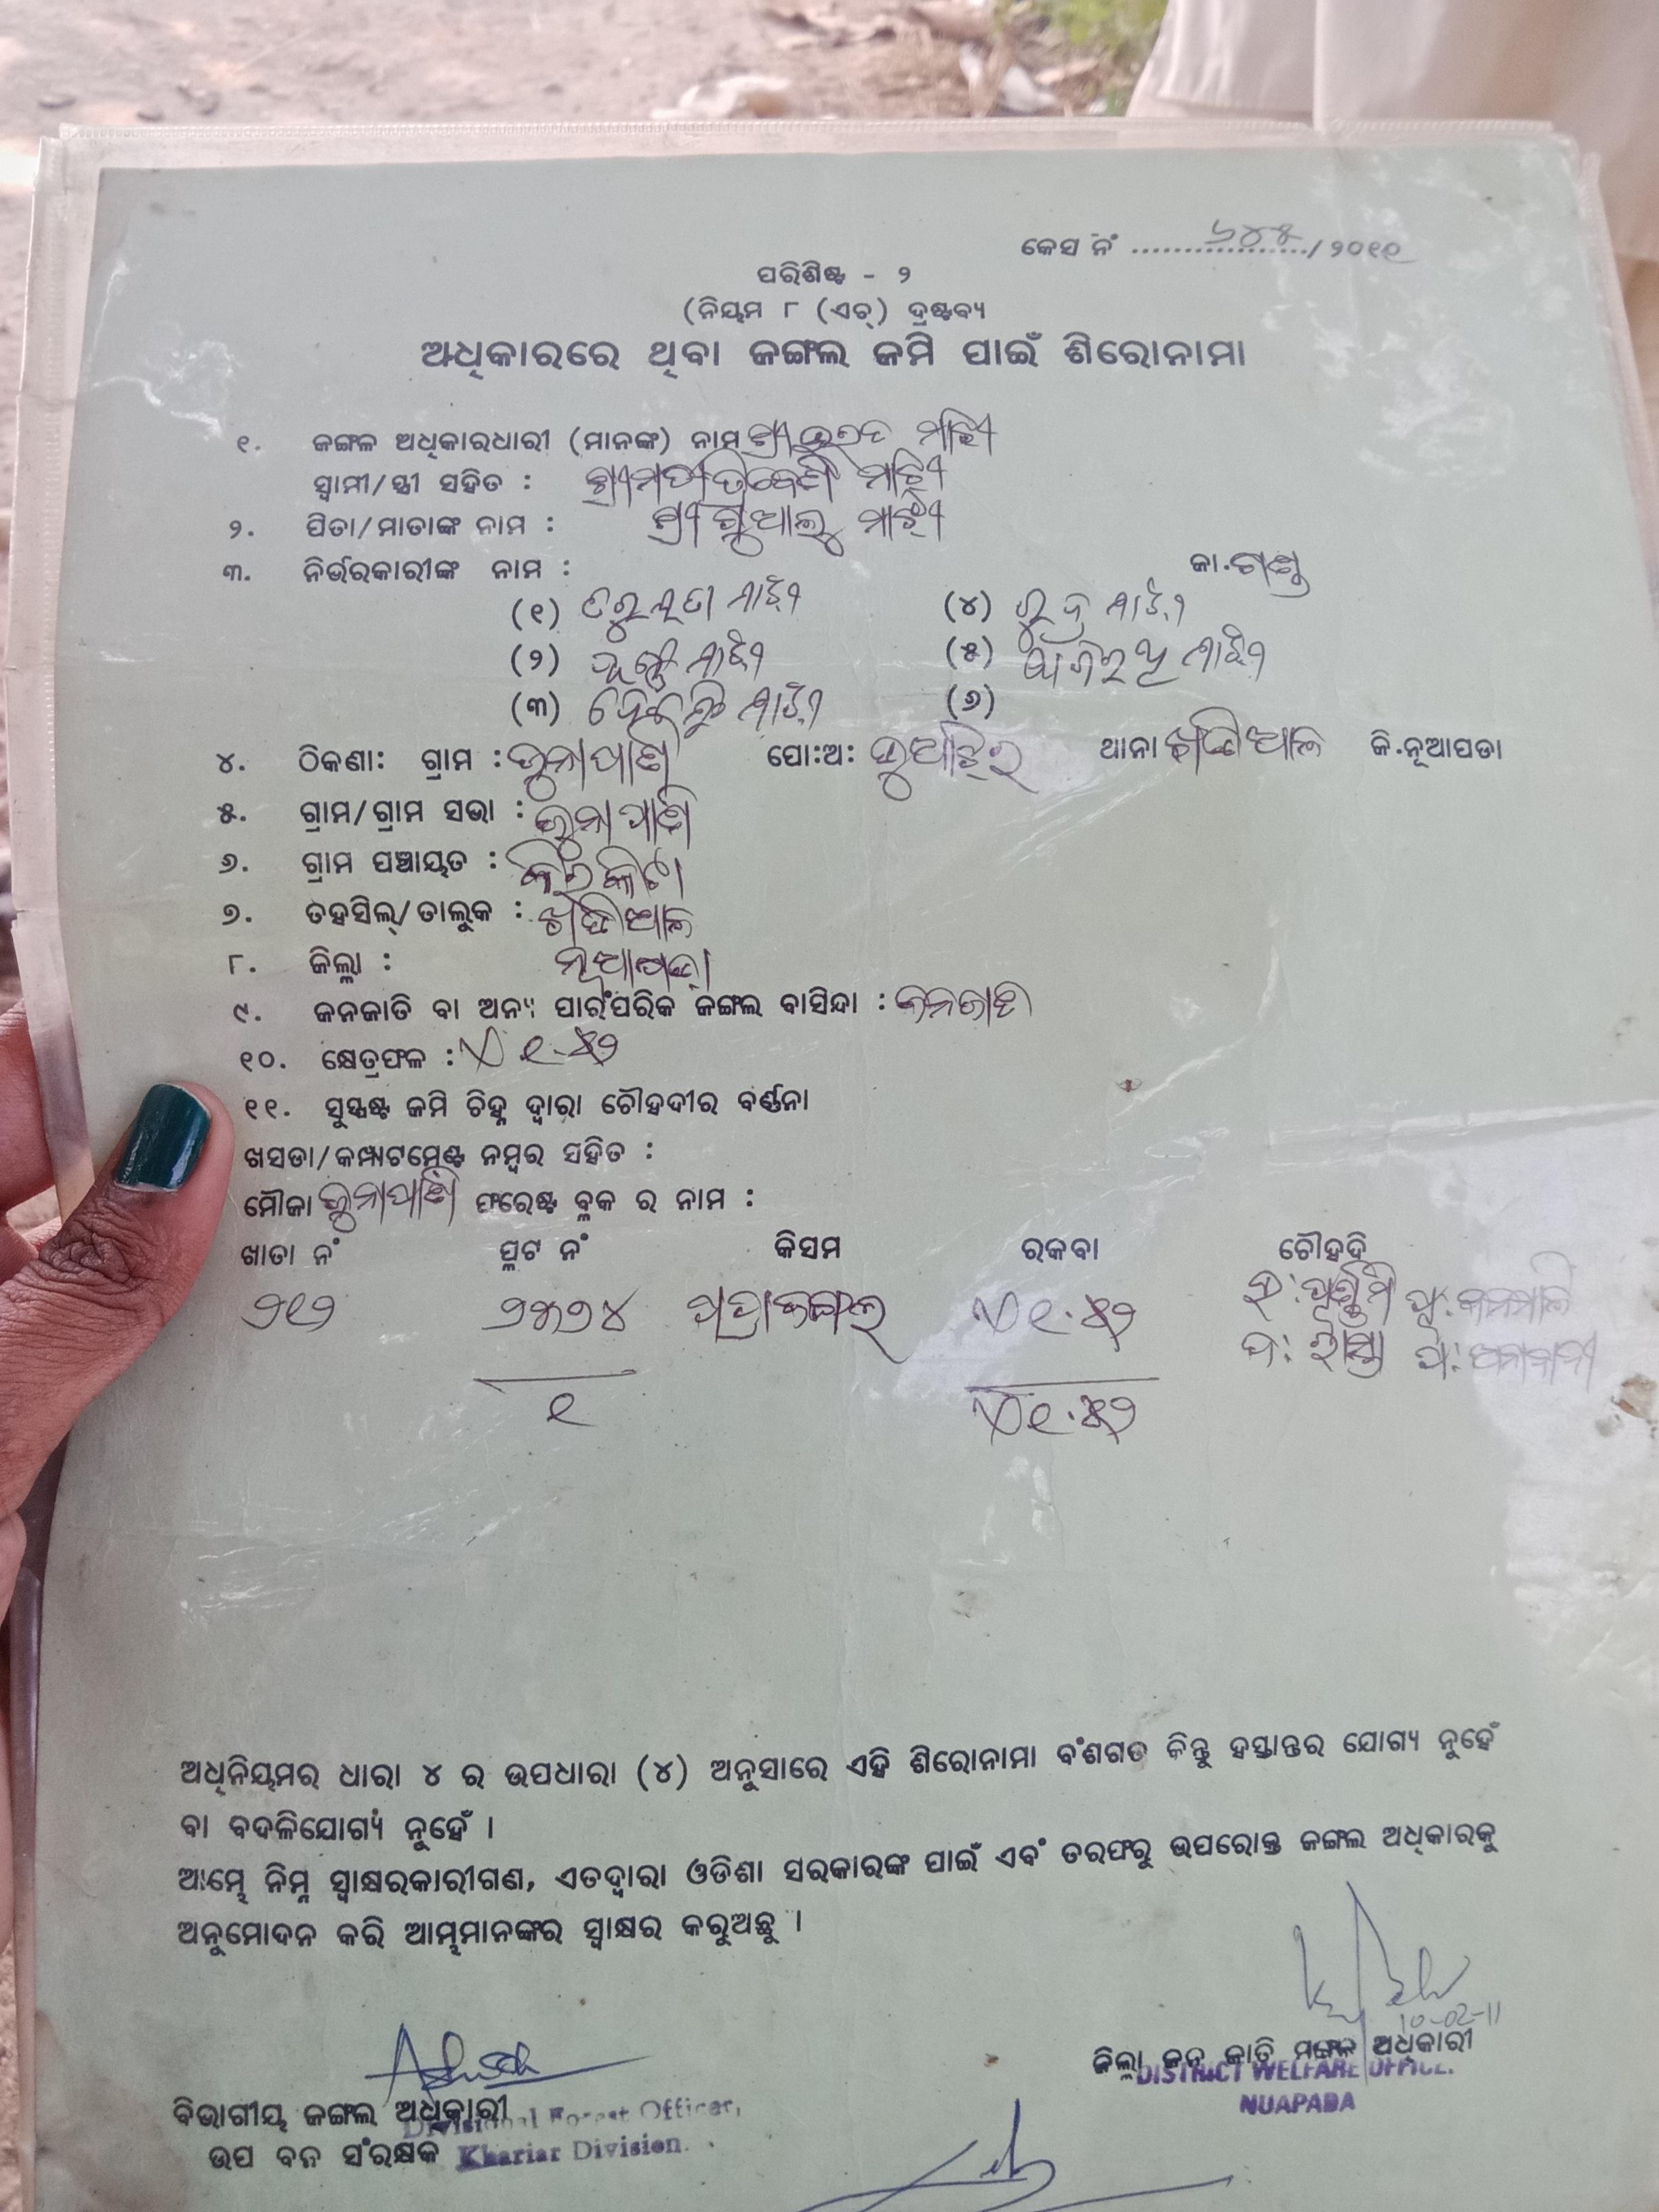 କେସ ନଂ ୬୪୫/୨୦୧୧
ପରିଶିଷ୍ଟ - ୨
(ନିୟମ ୮ (ଏଚ୍) ଦ୍ରଷ୍ଟବ୍ୟ
ଅଧିକାରରେ ଥିବା ଜଙ୍ଗଲ ଜମି ପାଇଁ ଶିରୋନାମା
୧. ଜଙ୍ଗଲ ଅଧିକାରଧାରୀ (ମାନଙ୍କ) ନାମ ଶ୍ରୀ ମାଝି
ସ୍ୱାମୀ/ସ୍ତ୍ରୀ ସହିତ : ଶ୍ରୀମତୀ ତ୍ରିବେଣୀ ମାଝି
୨. ପିତା/ମାତାଙ୍କ ନାମ : ଶ୍ରୀ ମାଝି
୩. ନିର୍ଭରକାରୀଙ୍କ ନାମ : ଜା.ଗଣ୍ଡ
(୧) ତରୁଲତା ମାଝି (୪) ରୁଦ୍ର ମାଝି
(୨) ମାଝି (୫) ମାଝି
(୩) ମାଝି (୬)
୪. ଠିକଣା: ଗ୍ରାମ : ଭୁନାପାଣି ପୋ:ଅ: ଥାନା ଖଡ଼ିଆଳ ଜି.ନୂଆପଡା
୫. ଗ୍ରାମ/ଗ୍ରାମ ସଭା : ଭୁନାପାଣି
୬. ଗ୍ରାମ ପଞ୍ଚାୟତ :
୭. ତହସିଲ୍/ତାଲୁକ : ଖଡ଼ିଆଳ
୮. ଜିଲ୍ଲା : ନୂଆପଡ଼ା
୯. ଜନଜାତି ବା ଅନ୍ୟ ପାରଂପରିକ ଜଙ୍ଗଲ ବାସିନ୍ଦା : ଜନଜାତି
୧୦. କ୍ଷେତ୍ରଫଳ : ୧.୫୨
୧୧. ସୁସ୍ପଷ୍ଟ ଜମି ଚିହ୍ନ ଦ୍ୱାରା ଚୌହଦୀର ବର୍ଣ୍ଣନା
ଖସଡା/କମ୍ପାଟମେଣ୍ଟ ନମ୍ବର ସହିତ :
ମୌଜା ଭୁନାପାଣି ଫରେଷ୍ଟ ବ୍ଳକ ର ନାମ :
ଖାତା ନଂ ପ୍ଳଟ ନଂ କିସମ ରକବା ଚୌହଦି
୨୧୨ ୧.୫୨
୧ ୧.୫୨
ଅଧିନିୟମର ଧାରା ୪ ର ଉପଧାରା (୪) ଅନୁସାରେ ଏହି ଶିରୋନାମା ବଂଶଗତ କିନ୍ତୁ ହସ୍ତାନ୍ତର ଯୋଗ୍ୟ ନୁହେଁ
ବା ବଦଳିଯୋଗ୍ୟ ନୁହେଁ ।
ଆମ୍ଭେ ନିମ୍ନ ସ୍ୱାକ୍ଷରକାରୀଗଣ, ଏତଦ୍ୱାରା ଓଡିଶା ସରକାରଙ୍କ ପାଇଁ ଏବଂ ତରଫରୁ ଉପରୋକ୍ତ ଜଙ୍ଗଲ ଅଧିକାରକୁ
ଅନୁମୋଦନ କରି ଆମ୍ଭମାନଙ୍କର ସ୍ୱାକ୍ଷର କରୁଅଛୁ ।
10-02-11
ଜିଲ୍ଲା ଜନ ଜାତି ମଙ୍ଗଳ ଅଧିକାରୀ
DISTRICT WELFARE OFFICE.
NUAPADA
ବିଭାଗୀୟ ଜଙ୍ଗଲ ଅଧିକାରୀ
Divisional Forest Officer,
ଉପ ବନ ସଂରକ୍ଷକ Khariar Division.